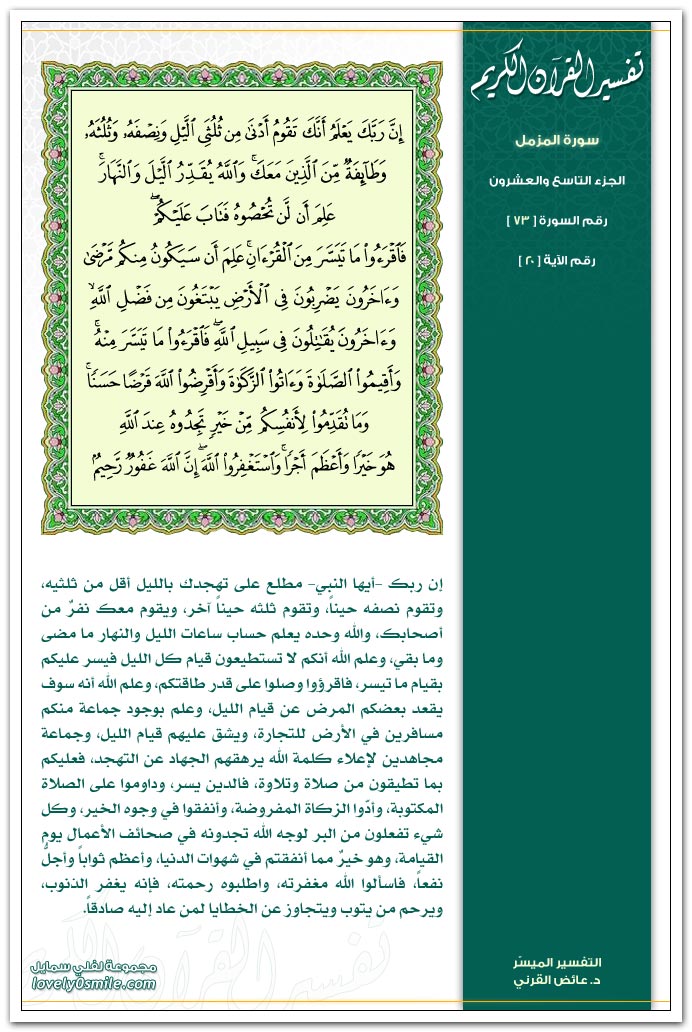 تفسير القرآن الكريم
سورة المزمل
الجزء التاسع والعشرون
رقم السورة [ ٧٣ ]
رقم الآية [ ٢٠ ]
إِنَّ رَبَّكَ يَعْلَمُ أَنَّكَ تَقُومُ أَدْنَىٰ مِن ثُلُثَيِ ٱلَّيْلِ وَنِصْفَهُۥ وَثُلُثَهُۥ
وَطَآئِفَةٌ مِّنَ ٱلَّذِينَ مَعَكَ ۚ وَٱللَّهُ يُقَدِّرُ ٱلَّيْلَ وَٱلنَّهَارَ ۚ
عَلِمَ أَن لَّن تُحْصُوهُ فَتَابَ عَلَيْكُمْ ۖ
فَٱقْرَءُوا۟ مَا تَيَسَّرَ مِنَ ٱلْقُرْءَانِ ۚ عَلِمَ أَن سَيَكُونُ مِنكُم مَّرْضَىٰ
وَءَاخَرُونَ يَضْرِبُونَ فِى ٱلْأَرْضِ يَبْتَغُونَ مِن فَضْلِ ٱللَّهِ ۙ
وَءَاخَرُونَ يُقَٰتِلُونَ فِى سَبِيلِ ٱللَّهِ ۖ فَٱقْرَءُوا۟ مَا تَيَسَّرَ مِنْهُ ۚ
وَأَقِيمُوا۟ ٱلصَّلَوٰةَ وَءَاتُوا۟ ٱلزَّكَوٰةَ وَأَقْرِضُوا۟ ٱللَّهَ قَرْضًا حَسَنًا ۚ
وَمَا تُقَدِّمُوا۟ لِأَنفُسِكُم مِّنْ خَيْرٍ تَجِدُوهُ عِندَ ٱللَّهِ
هُوَ خَيْرًا وَأَعْظَمَ أَجْرًا ۚ وَٱسْتَغْفِرُوا۟ ٱللَّهَ ۖ إِنَّ ٱللَّهَ غَفُورٌ رَّحِيمٌۢ
إن ربك -أيها النبي- مطلع على تهجدك بالليل أقل من ثلثيه،
وتقوم نصفه حيناً، وتقوم ثلثه حيناً آخر، ويقوم معك نفرٌ من
أصحابك، والله وحده يعلم حساب ساعات الليل والنهار ما مضى
وما بقي، وعلم الله أنكم لا تستطيعون قيام كل الليل فيسر عليكم
بقيام ما تيسر، فاقرؤوا وصلوا على قدر طاقتكم، وعلم الله أنه سوف
يقعد بعضكم المرض عن قيام الليل، وعلم بوجود جماعة منكم
مسافرين في الأرض للتجارة، ويشق عليهم قيام الليل، وجماعة
مجاهدين لإعلاء كلمة الله يرهقهم الجهاد عن التهجد، فعليكم
بما تطيقون من صلاة وتلاوة، فالدين يسر، وداوموا على الصلاة
المكتوبة، وأدّوا الزكاة المفروضة، وأنفقوا في وجوه الخير، وكل
شيء تفعلون من البر لوجه الله تجدونه في صحائف الأعمال يوم
القيامة، وهو خيرٌ مما أنفقتم في شهوات الدنيا، وأعظم ثواباً وأجلُّ
نفعاً، فاسألوا الله مغفرته، واطلبوه رحمته، فإنه يغفر الذنوب،
ويرحم من يتوب ويتجاوز عن الخطايا لمن عاد إليه صادقاً.
التفسير الميسّر
د. عائض القرني
مجموعة لفلي سمايل
lovely0smile.com
تفسير القرآن الكريم